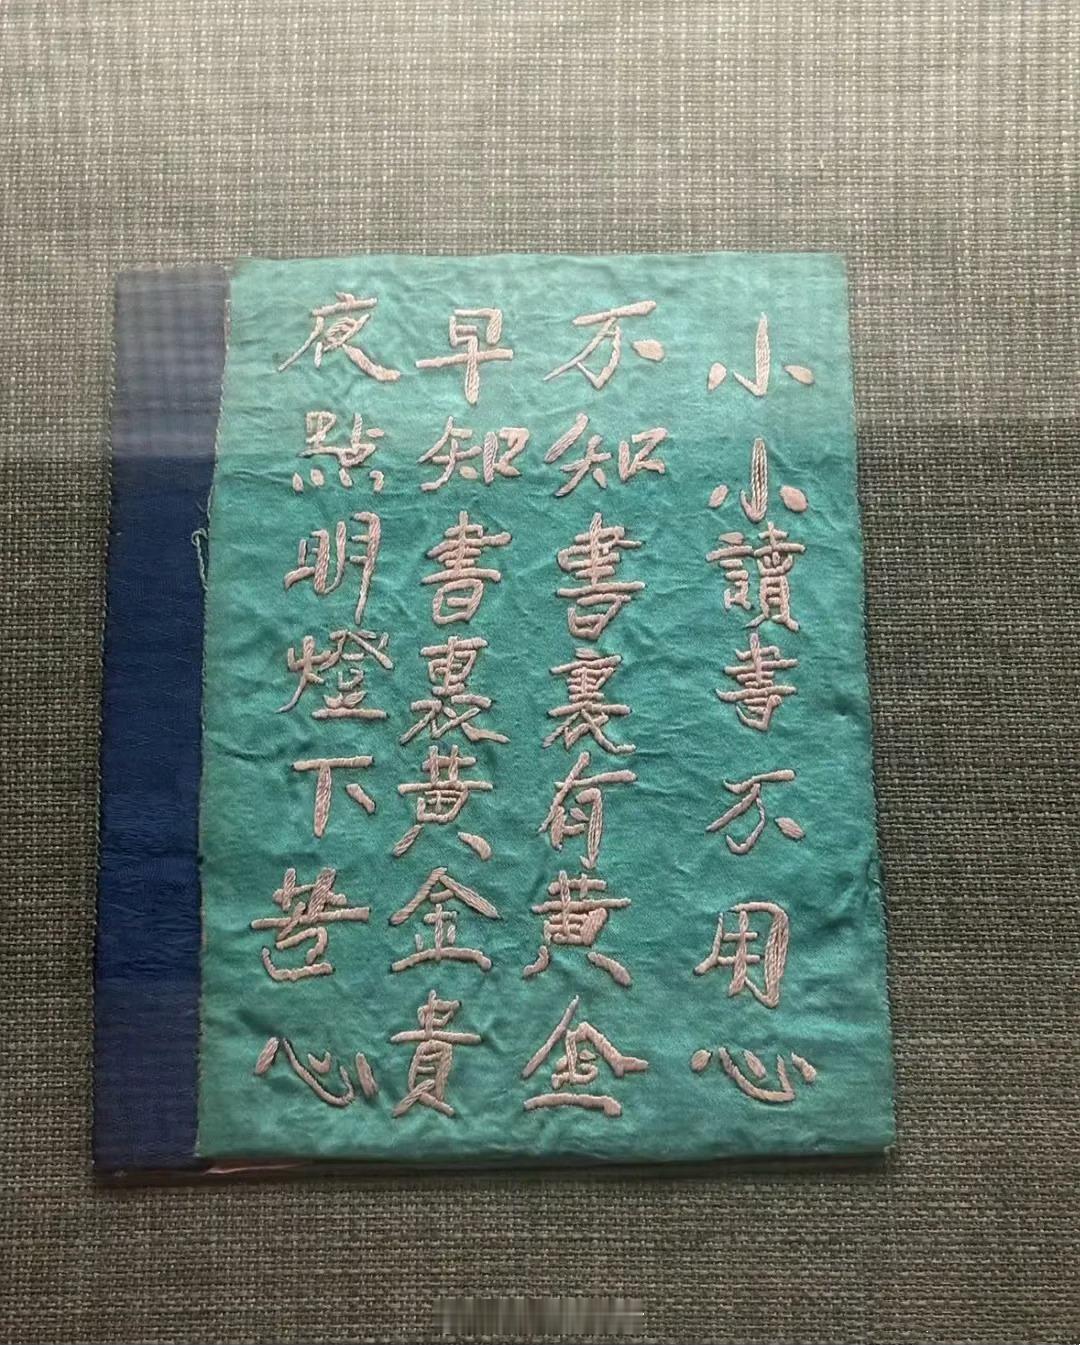 小小讀書不用心
不知書裏有黄金
早知書裏黄金貴
夜點明燈下苦心